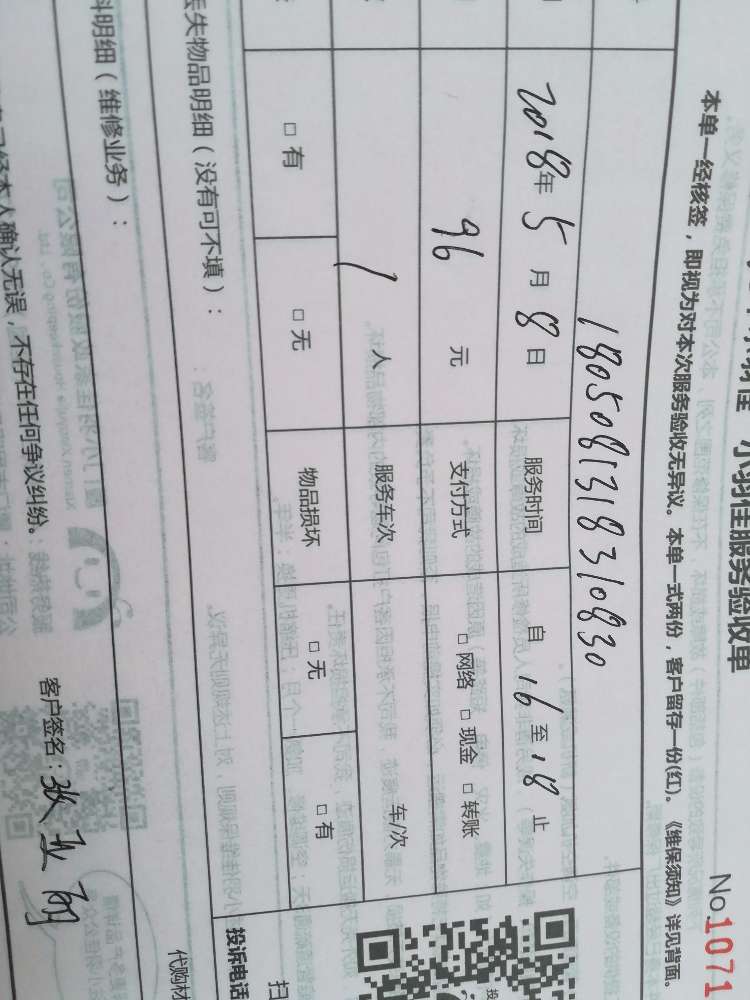 小羽佳服务验收单
No.1071
本单一经核签，即视为对本次服务验收无异议。本单一式两份，客户留存一份(红)。《维保须知》详见背面。
1805081318310830
2018年5月8日 服务时间 自16至18止
96元 支付方式 □网络 □现金 □转账
1人 服务车次 车/次
□有 □无 物品损坏 □无 □有
失物品明细（没有可不填）：
投诉电话
料明细（维修业务）：
代购材
本人确认无误，不存在任何争议纠纷。
客户签名：张亚丽